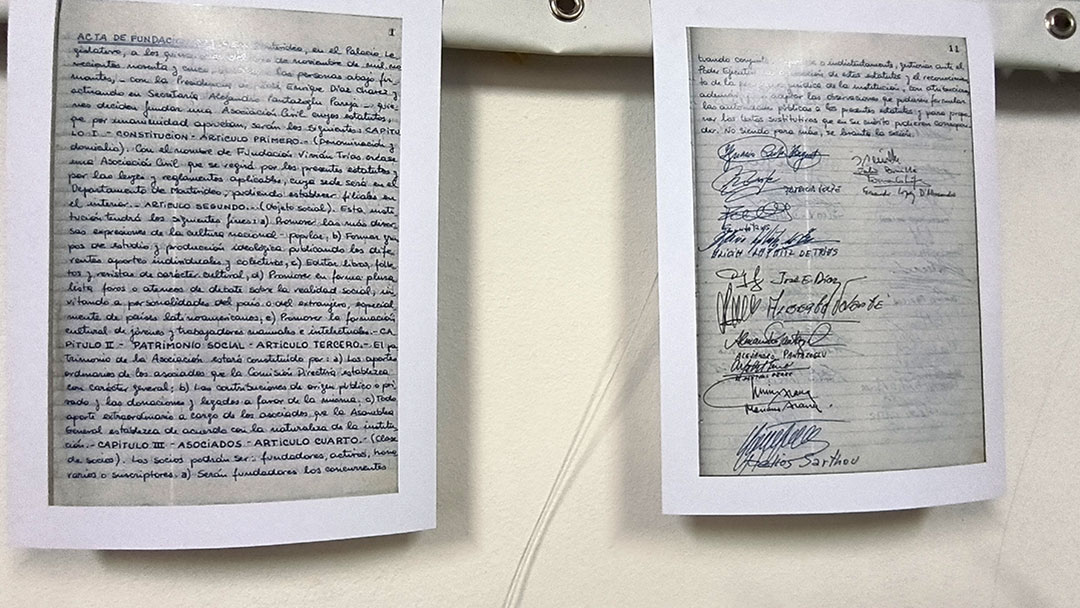 1
ACTA DE FUNDACI
gislativo, a los de noviembre de mil no-
vecientos noventa y cinco, las personas abajo fir-
mantes, - con la Presidencia de José Enrique Díaz Chavez y
actuando en Secretaría Alejandro Pantazoglu Pareja -, quie-
nes deciden fundar una Asociación Civil cuyos estatutos,
que por unanimidad aprueban, serán los siguientes CAPITU
LO I - CONSTITUCION - ARTICULO PRIMERO.- (Denominación y
domicilio). Con el nombre de Fundación Vivián Trías créase
una Asociación Civil que se regirá por los presentes estatutos y
por las leyes y reglamentos aplicables, cuya sede será en el
Departamento de Montevideo, pudiendo establecer filiales en
el interior. - ARTICULO SEGUNDO. - (Objeto social). Esta insti
tución tendrá los siguientes fines: a) Promover las más diver
sas expresiones de la cultura nacional - popular, b) Formar gru
pos de estudio y producción ideológica publicando los dife
rentes aportes individuales y colectivos, c) Editar libros, folle
tos y revistas de carácter cultural, d) Promover en forma plura
lista foros o ateneos de debate sobre la realidad social, in
vitando a personalidades del país o del extranjero, especial
mente de países latinoamericanos, e) Promover la formación
cultural de jóvenes y trabajadores manuales e intelectuales.- CA
PITULO II - PATRIMONIO SOCIAL - ARTICULO TERCERO.- El pa
trimonio de la Asociación estará constituido por: a) Los aportes
ordinarios de los asociados que la Comisión Directiva establezca
con carácter general; b) Las contribuciones de origen público o pri
vado y las donaciones y legados a favor de la misma, c) Todo
aporte extraordinario a cargo de los asociados que la Asamblea
General establezca de acuerdo con la naturaleza de la institu
ción.- CAPITULO III - ASOCIADOS - ARTICULO CUARTO.- (Clase
de socios). Los socios podrán ser: fundadores, activos, hono
rarios o suscriptores. a) Serán fundadores los concurrentes
11
tuando o indistintamente, gestionen ante el
Poder Ejecutivo de estos estatutos y el reconocimien
to de la jurídica de la institución, con atribuciones,
además, aceptar las observaciones que pudieran formular
las autoridades públicas a los presentes estatutos y para propo
ner los textos sustitutivos que en su mérito pudieren correspon
der. No siendo para más, se levanta la sesión.
JOSE E DIAZ
ALEJANDRO PANTAZOGLU
Mariano Arana
Helios Sarthou